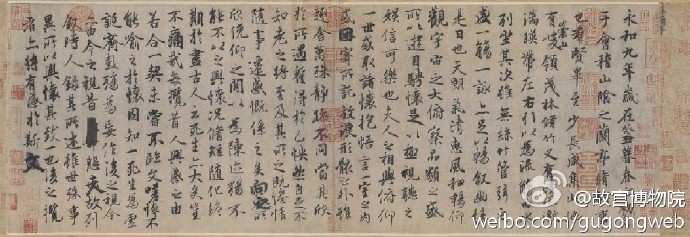 永和九年歲在癸丑暮春之初會
于會稽山陰之蘭亭脩稧事
也群賢畢至少長咸集此地
有崇山峻領茂林脩竹又有清流激
湍暎帶左右引以為流觴曲水
列坐其次雖無絲竹管弦之
盛一觴一詠亦足以暢敘幽情
是日也天朗氣清惠風和暢仰
觀宇宙之大俯察品類之盛
所以遊目騁懷足以極視聽之
娛信可樂也夫人之相與俯仰
一世或取諸懷抱悟言一室之內
或因寄所託放浪形骸之外雖
趣舍萬殊靜躁不同當其欣
於所遇蹔得於己怏然自足不
知老之將至及其所之既惓情
隨事遷感慨係之矣向之所
欣俛仰之閒以為陳迹猶不
能不以之興懷況脩短隨化終
期於盡古人云死生亦大矣豈
不痛哉每攬昔人興感之由
若合一契未嘗不臨文嗟悼不
能喻之於懷固知一死生為虛
誕齊彭殤為妄作後之視今
亦由今之視昔悲夫故列
敘時人錄其所述雖世殊事
異所以興懷其致一也後之攬
者亦將有感於斯文
@故宫博物院
weibo.com/gugongweb